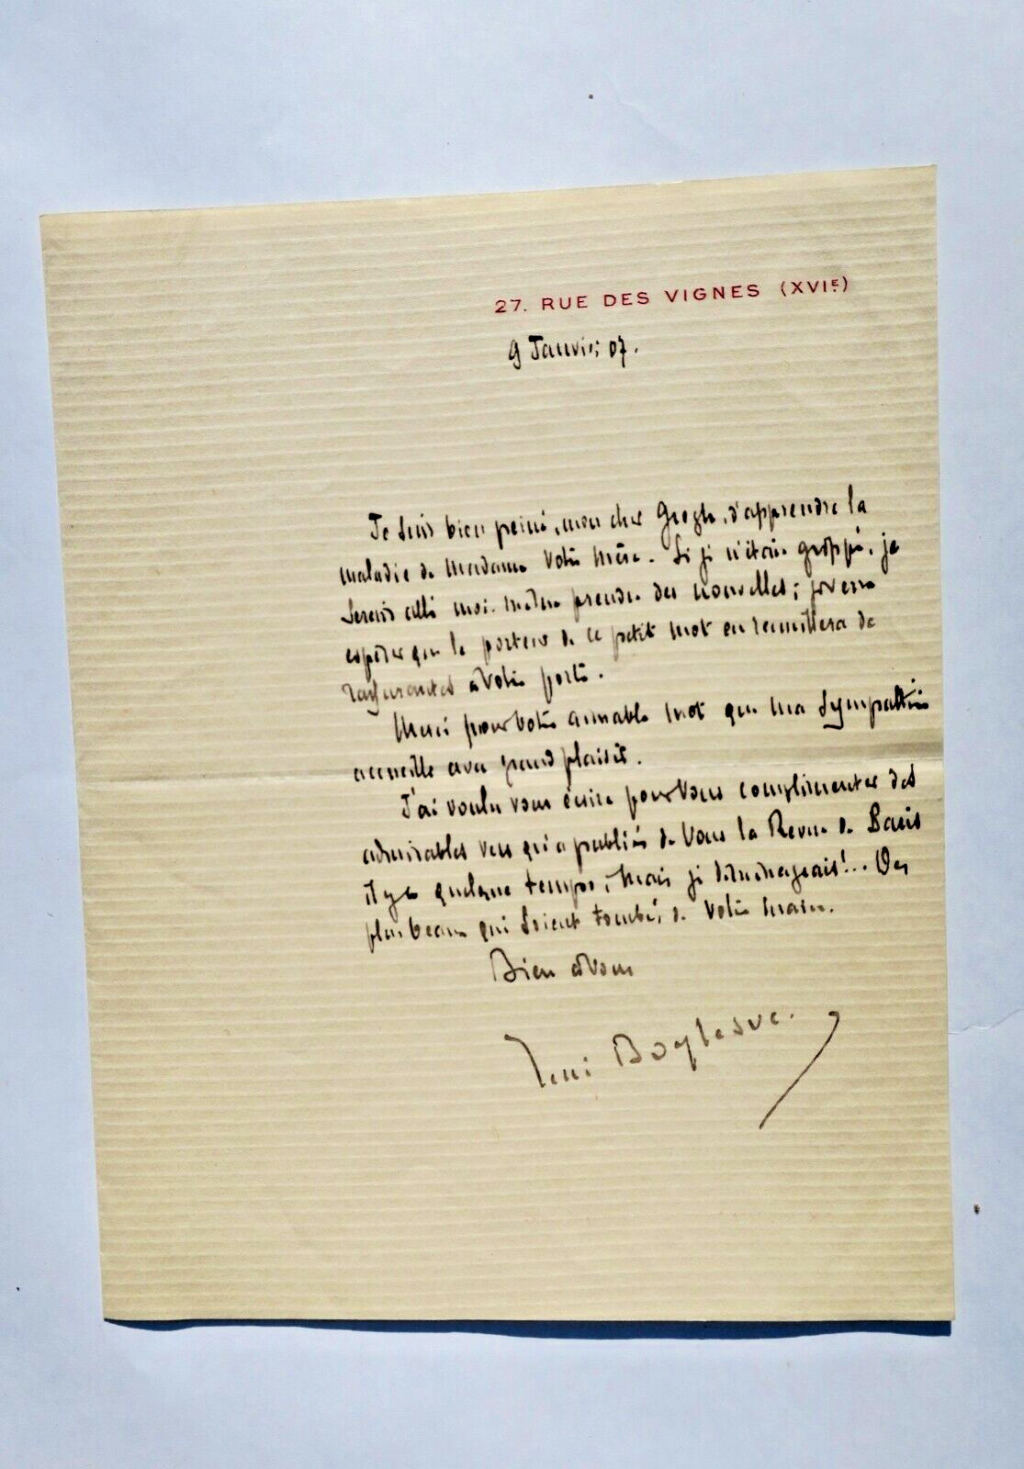 27. RUE DES VIGNES (XVIE)
9 Janvier 07.
Je suis bien peiné, mon cher Gregh, d'apprendre la
maladie de Madame Votre Mère. Si je n'étais grippé, je
serais allé moi-même prendre des nouvelles; j'ose
espérer que le porteur de ce petit mot en recueillera de
rassurantes à Votre porte.
Merci pour Votre aimable mot que ma sympathie
accueille avec grand plaisir.
J'ai voulu vous écrire pour Vous complimenter des
admirables vers qu'a publiés de Vous la Revue de Paris
il y a quelque temps, Mais je déménageais!... Des
plus beaux qui soient tombés de Votre main.
Bien à Vous
René Boylesve.